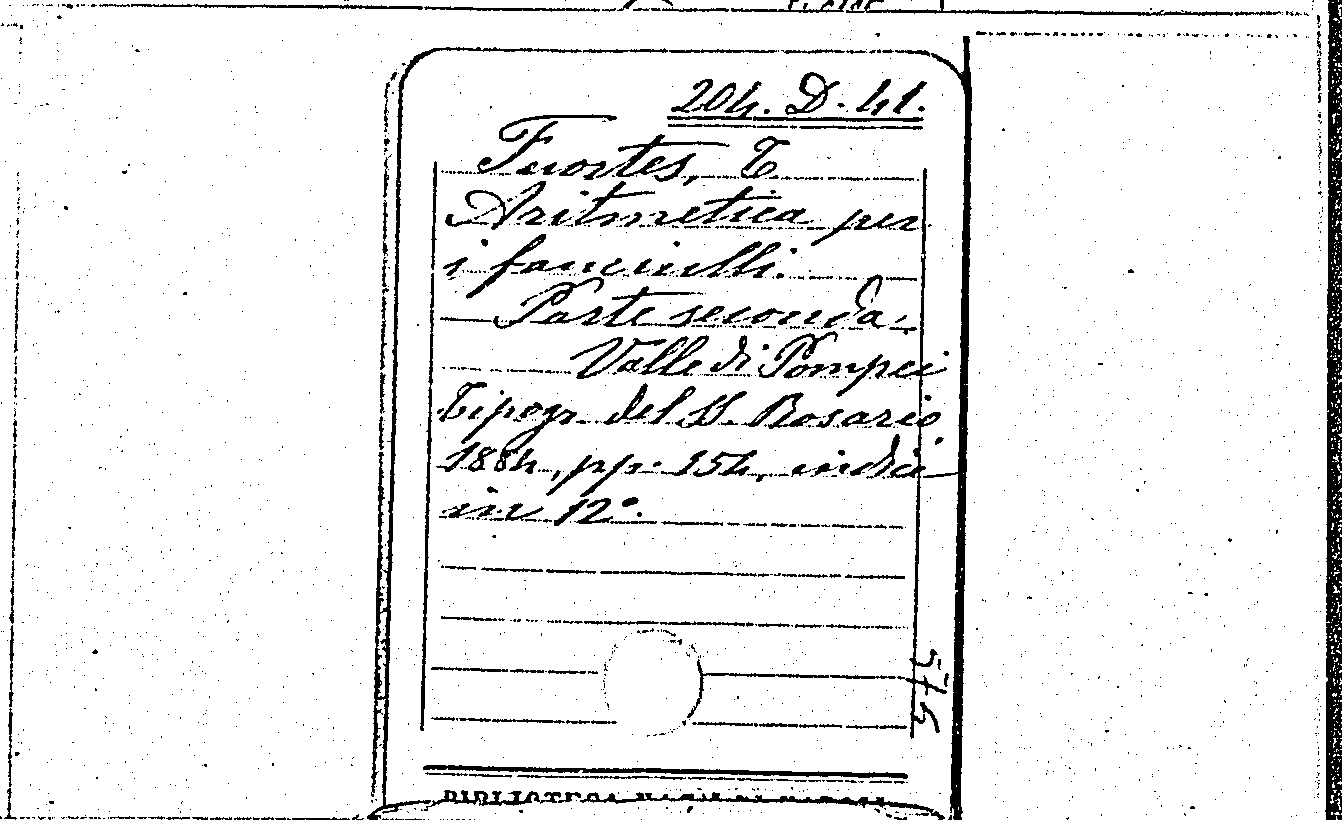 204. D. 41.
Fuortes, T
Aritmetica per
i fanciulli.
Parte seconda.
Valle di Pompei
Tipogr. del SS. Rosario
1884, pp. 154, indici
in 12°.
576
BIBLIOTECA